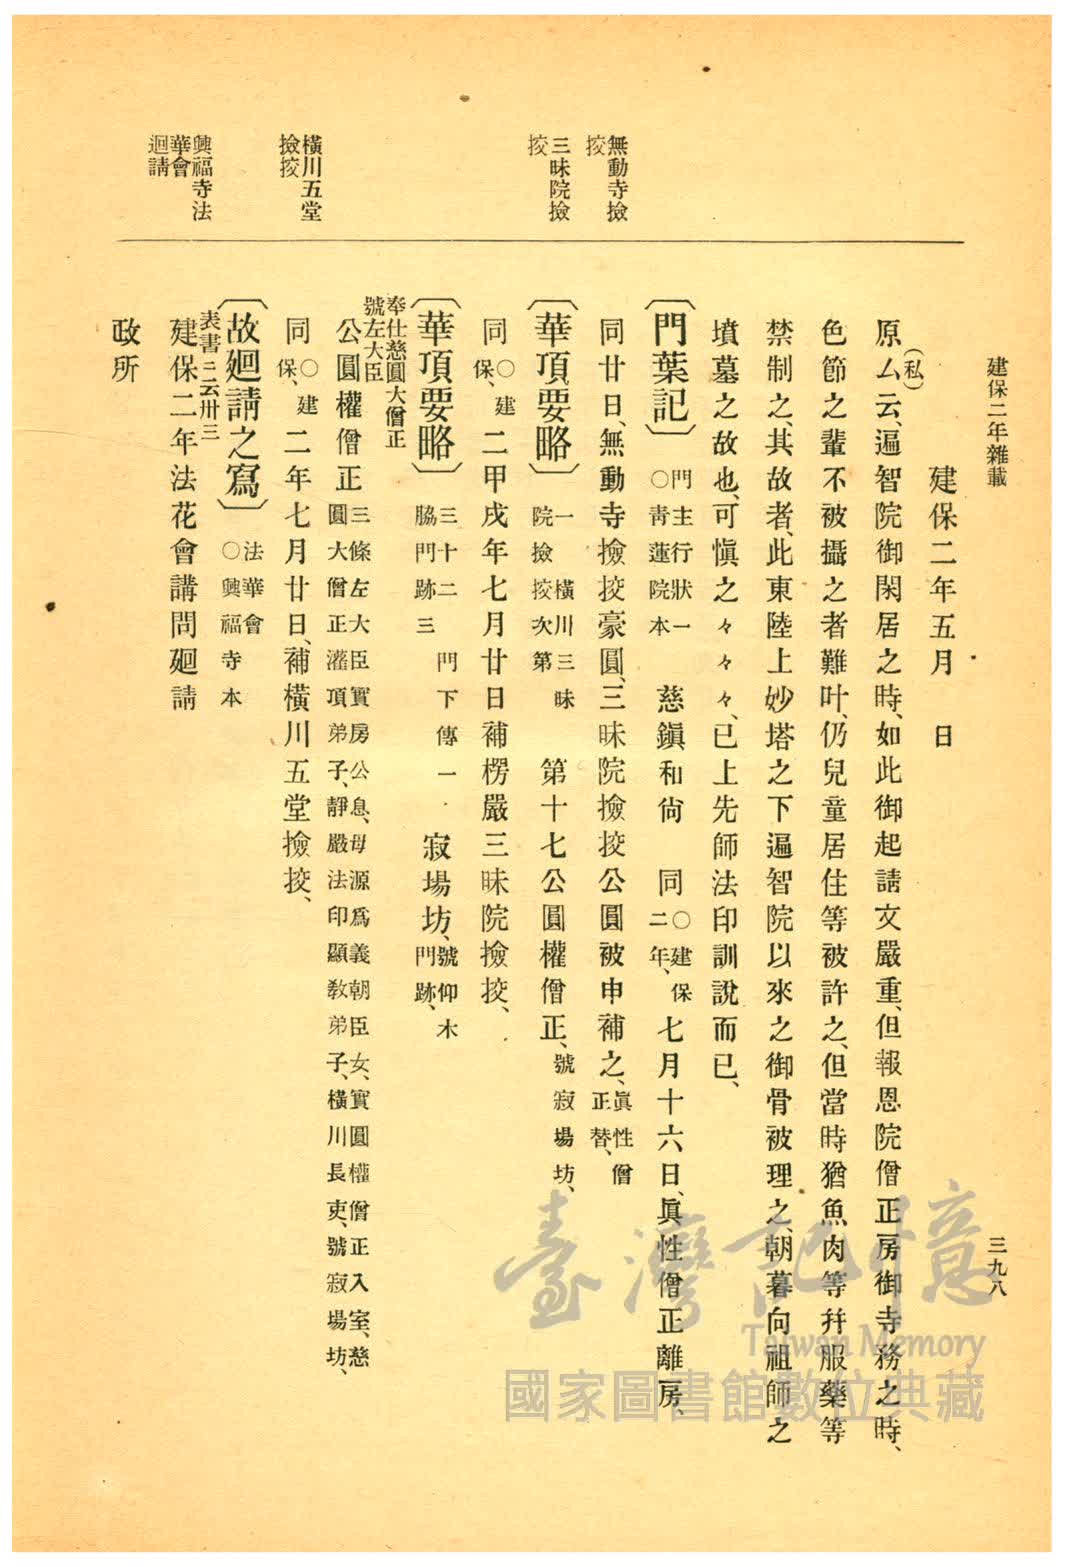 建保二年雜載
三九八
無動寺撿
挍
三昧院撿
挍
橫川五堂
撿挍
興福寺法
華會
迴請
建保二年五月　日
原ム(私)云、遍智院御閑居之時、如此御起請文嚴重、但報恩院僧正房御寺務之時、
色節之輩不被攝之者難叶、仍兒童居住等被許之、但當時猶魚肉等幷服藥等
禁制之、其故者、此東陸上妙塔之下遍智院以來之御骨被埋之、朝暮向祖師之
墳墓之故也、可愼之々々々、已上先師法印訓說而已、
〔門葉記〕門主行狀一○靑蓮院本　慈鎭和尙　同○建保二年、七月十六日、眞性僧正離房、
同廿日、無動寺撿挍豪圓、三昧院撿挍公圓被申補之、眞性僧正替、
〔華頂要略〕一橫川三昧院撿挍次第　第十七公圓權僧正、號寂場坊、
同○建保、二甲戌年七月廿日補楞嚴三昧院撿挍、
〔華頂要略〕三十二門下傳一脇門跡三　寂場坊、號仰木門跡、
奉仕慈圓大僧正
號左大臣
公圓權僧正三條左大臣實房公息、母源爲義朝臣女、實圓權僧正入室、慈圓大僧正灌頂弟子、靜嚴法印顯敎弟子、橫川長吏、號寂場坊、
同○建保、二年七月廿日、補橫川五堂撿挍、
〔故迴請之寫〕法華會○興福寺本
表書ニ云卅三
建保二年法花會講問廻請
政所
臺灣記憶
Taiwan Memory
國家圖書館數位典藏